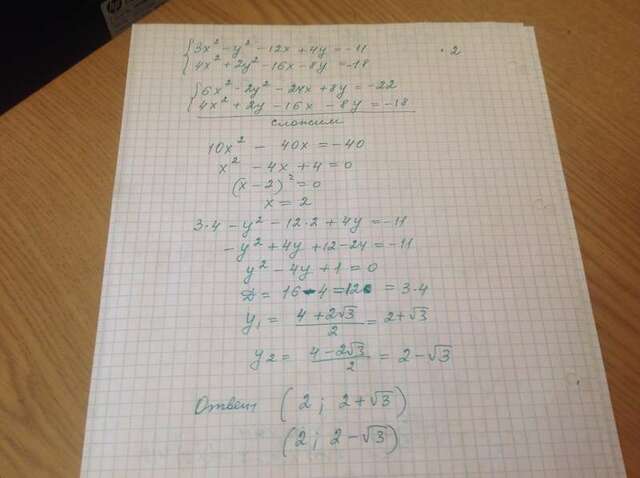 hp
3x² - y² - 12x + 4y = -11 · 2
4x² + 2y² - 16x - 8y = -18
6x² - 2y² - 24x + 8y = -22
4x² + 2y - 16x - 8y = -18
сложим
10x² - 40x = -40
x² - 4x + 4 = 0
(x - 2)² = 0
x = 2
3·4 - y² - 12·2 + 4y = -11
-y² + 4y + 12 - 24 = -11
y² - 4y + 1 = 0
D = 16 - 4 = 12 = 3·4
y₁ = (4 + 2√3)/2 = 2 + √3
y₂ = (4 - 2√3)/2 = 2 - √3
Ответ (2; 2 + √3)
(2; 2 - √3)